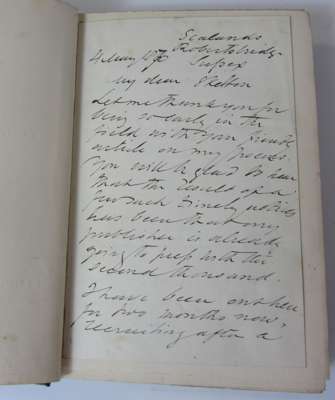 Scalands
Robertsbridge
Sussex
4 May 1870
My dear Skelton
Let me thank you for
being so early in the
field with your friendly
article on my Poems.
You will be glad to hear
that the result of a
few such timely notices
has been that my
publisher is already
going to press with the
second thousand.
I have been out here
for two months now,
recruiting after a